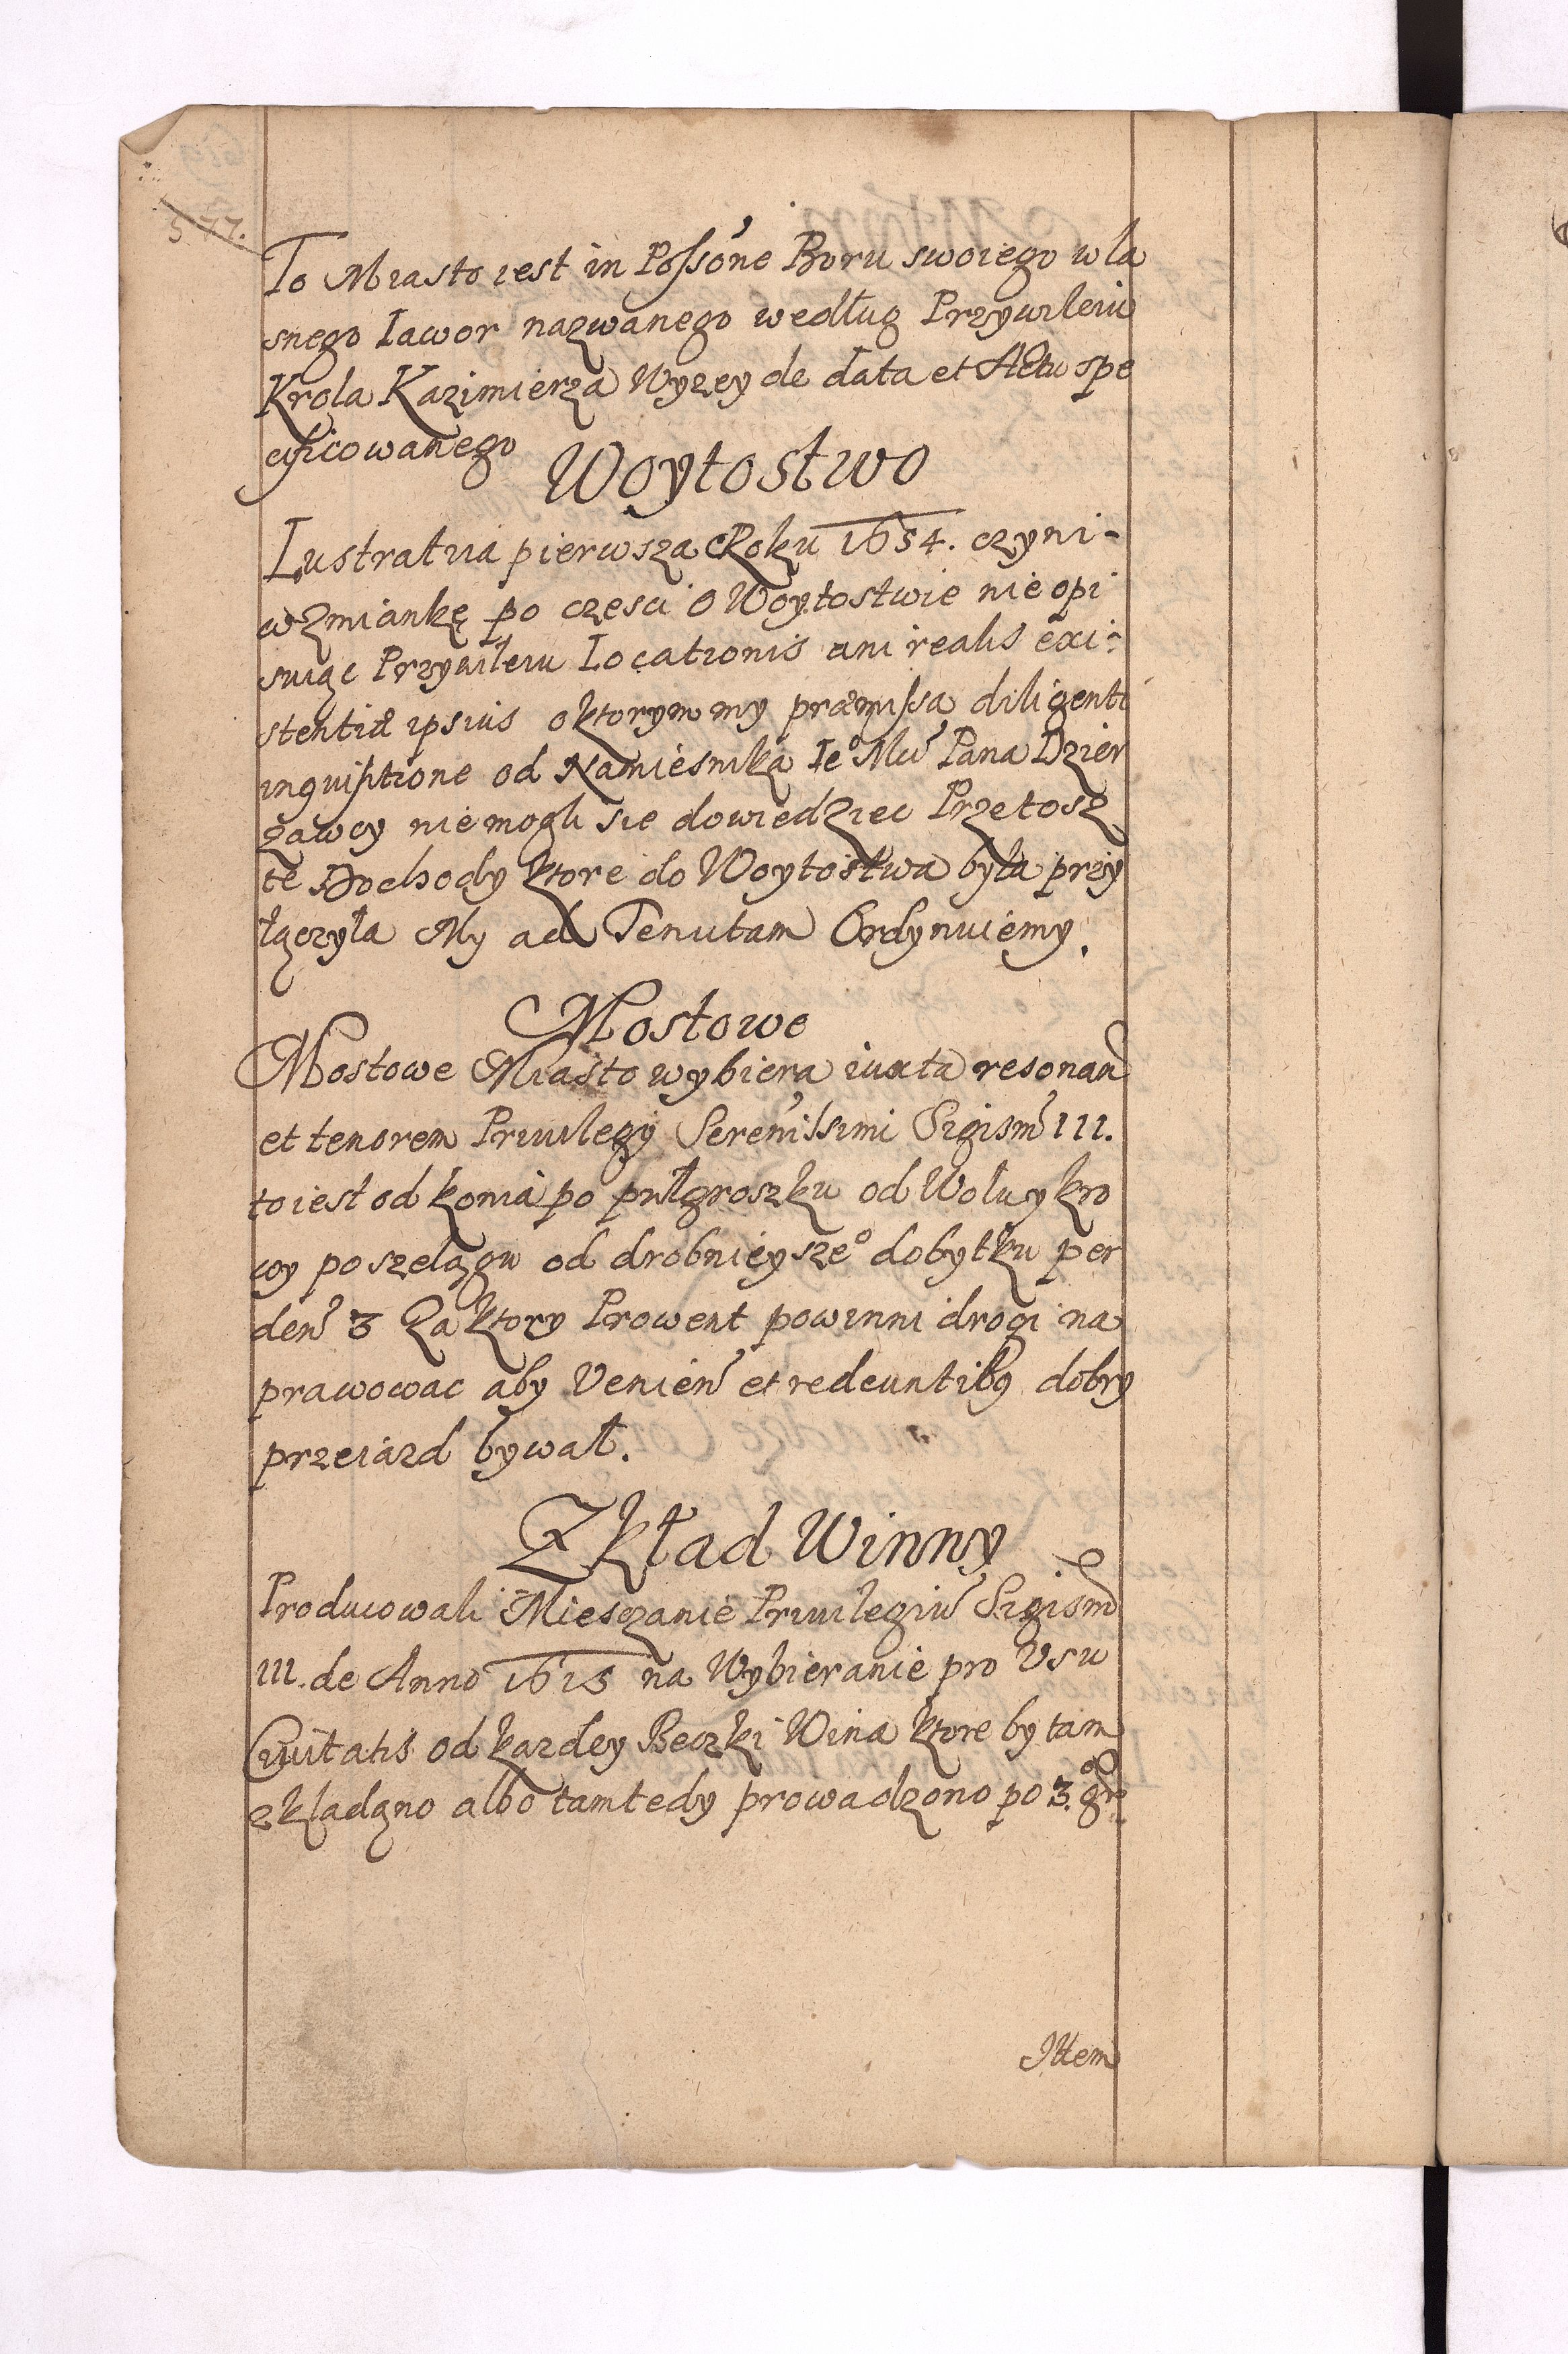 577.
To Miasto iest in Possone Boru swoiego wla
snego Iawor nazwanego według Przywileiu
Krola Kazimierza Wyzey de data et Actu spe
cificowanego
Woytostwo
Lustratia pierwsza Roku 1654. czyni-
wzmiankę po czesci o Woytostwie nie opi
suiąc Przywileiu Locationis ani realis exi:
stentiæ ipsius o ktorym my præmissa diligenti
inquisitione od Namiesnika Ieo Mci Pana Dzier
zawcy niemogli sie dowiedziec Przetosz
te Dochody ktore do Woytostwa była przy
łączyła My ad Tenutam Ordynuiemy.
Mostowe
Mostowe Miasto wybiera iuxta resonan
et tenorem Priuilegij Serenissimi Sigism III.
to iest od konia po pułgroszku od Wołu y kro
wy po szelągu od drobnieyszeo dobytku per
den 3 Za ktory Prowent powinni drogi na
prawowac aby Venien et redeuntibus dobry
przeiazd bywał.
Zkład Winny
Producowali Miesczanie Priuilegiu Sigism
III. de Anno 1615 na Wybieranie pro Vsu
Ciuitatis od kazdey Beczki Wina ktore by tam
zkładano albo tamtedy prowadzono po 3. gr
Ittem